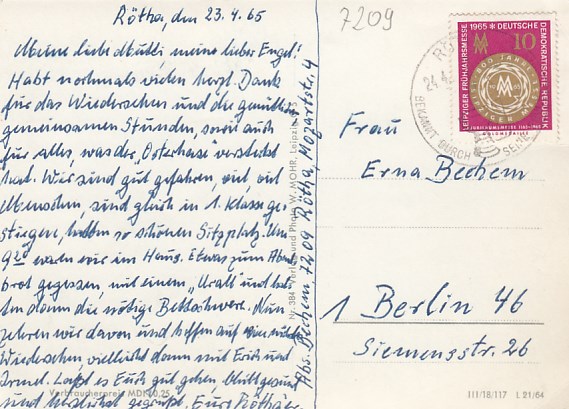 Rötha, den 23.4.65
Meine liebe Mutti, meine lieber Engel!
Habt nochmals vielen herzl. Dank
für das Wiedersehen und die gemütlichen
gemeinsamen Stunden, sowie auch
für alles, was der „Osterhase" versteckt
hat. Wir sind gut gefahren, viel, viel
Menschen, sind gleich in 1. Klasse ge-
stiegen, hatten so schönen Sitzplatz. Um
9 20 waren wir im Haus. Etwas zum Abend-
brot gegessen, mit einem „Uralt" und hat-
ten dann die nötige Bettschwere. Nun
zehren wir davon und hoffen auf ein
Wiedersehen, vielleicht dann mit Erich und
Irmel. Laßt es Euch gut gehen, bleibt gesund
und herzlichst gegrüßt. Eure Röthaer
Verbraucherpreis MDN 0,25
Nr. 384 Verlag und Photo W. MOHR, Leipzig
Abs. Bechem, 7209 Rötha, Mozartstr. 4
7209
LEIPZIGER FRÜHJAHRSMESSE 1965 DEUTSCHE DEMOKRATISCHE REPUBLIK
10
800 JAHRE LEIPZIGER
MM
JUBILÄUMSMESSE 1165-1965
24.4.
BEKANNT DURCH SEINE
Frau
Erna Bechem
1 Berlin 46
Siemensstr. 26
III/18/117 L 21/64